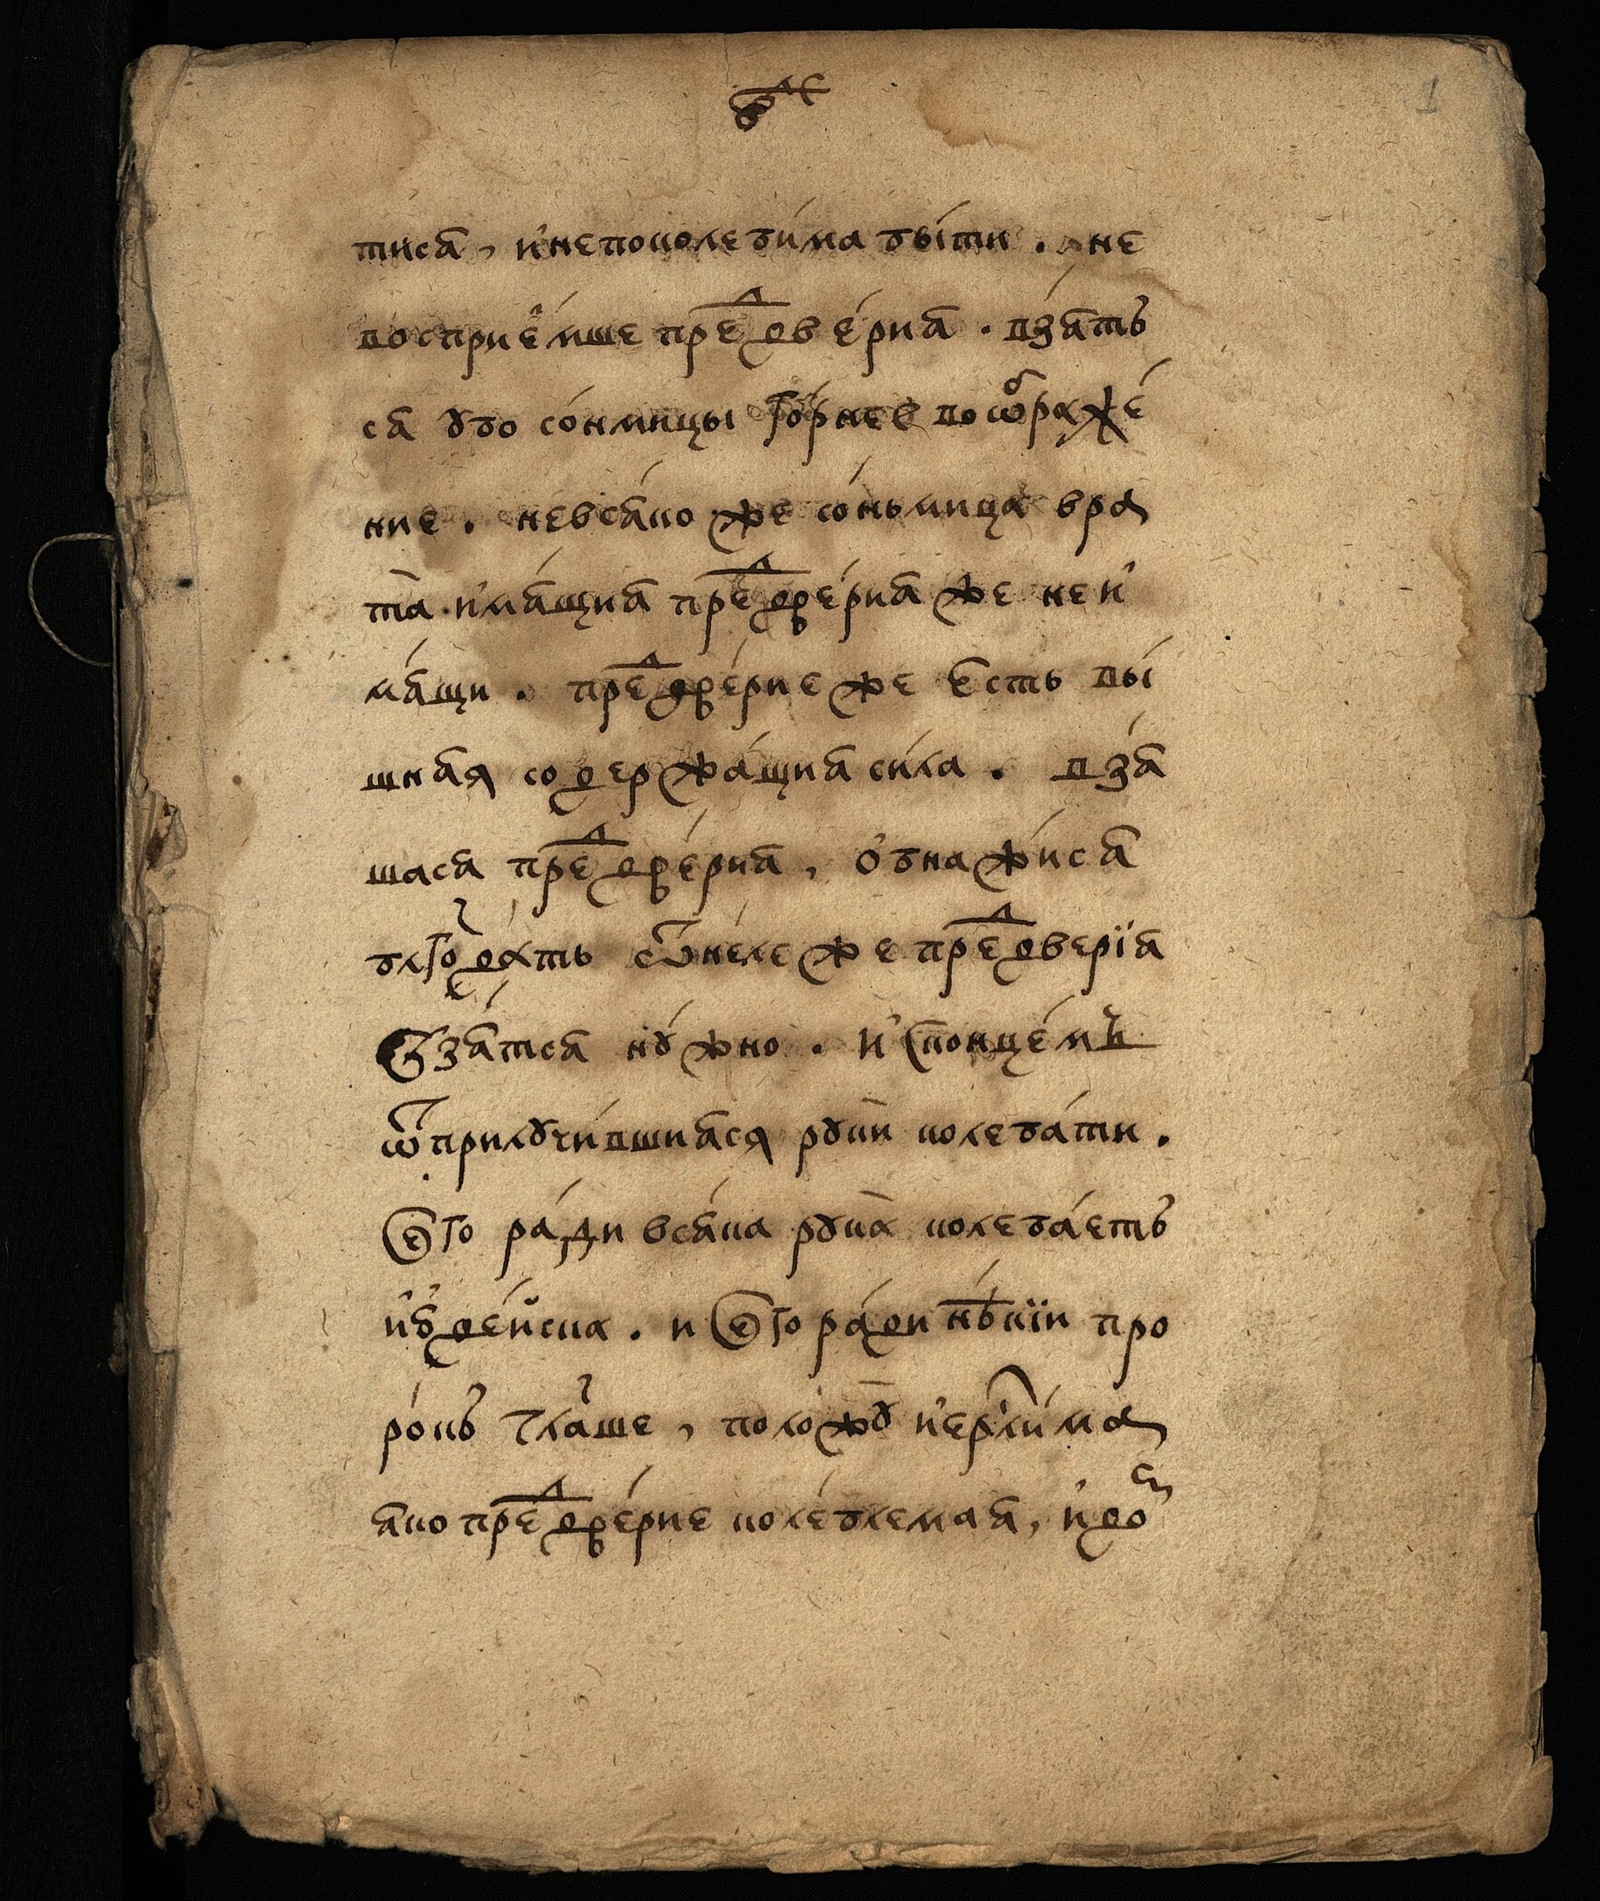 1
тисѧ, и҆ непоколеби́ма бы́ти. не
воспрїе́мше пре́ⷣдве́риѧ. взѧ́тъ
сѧ ᲂубо со́нмицы го́рнее воѡⷪ҇браже́
ние. невсѧ́ко же со́ньмица вра
та̀ и҆мѧ́щиѧ преⷣдве́риѧ же не и҆
мѧ́щи. преⷣдве́рие же е҆сть вы́
шнѧя содержа́щиѧ си́ла. взѧ́
шасѧ преⷣдве́риѧ, ѻ҆бнажи́сѧ
блгⷣода́ть ѿнеле же преⷣдверїѧ
ѿзѧ́тсѧ нꙋжно. и҆ понце́мъ
ѿприлꙋчи́вшиѧся рꙋкѝ колеба́ти.
сегѡ ра́ди всѧ́ка рꙋка̀ колеба́етъ
и҆ꙋдѐйска. и сего ра́ди нѣ́кїи про
ро́къ гла́ше, положꙋ̀ и҆ерⷭ҇ли́ма
ѧко преⷣдве́рие коле́блемаѧ, и҆ до